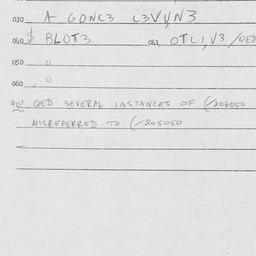 030 A GONC3 L3VVN3
040 $ BLOT3 042 OTL1,V3 /QED
050 0
060 0
901 QED SEVERAL INSTANCES OF (/206050
MISREFERRED TO (/205050